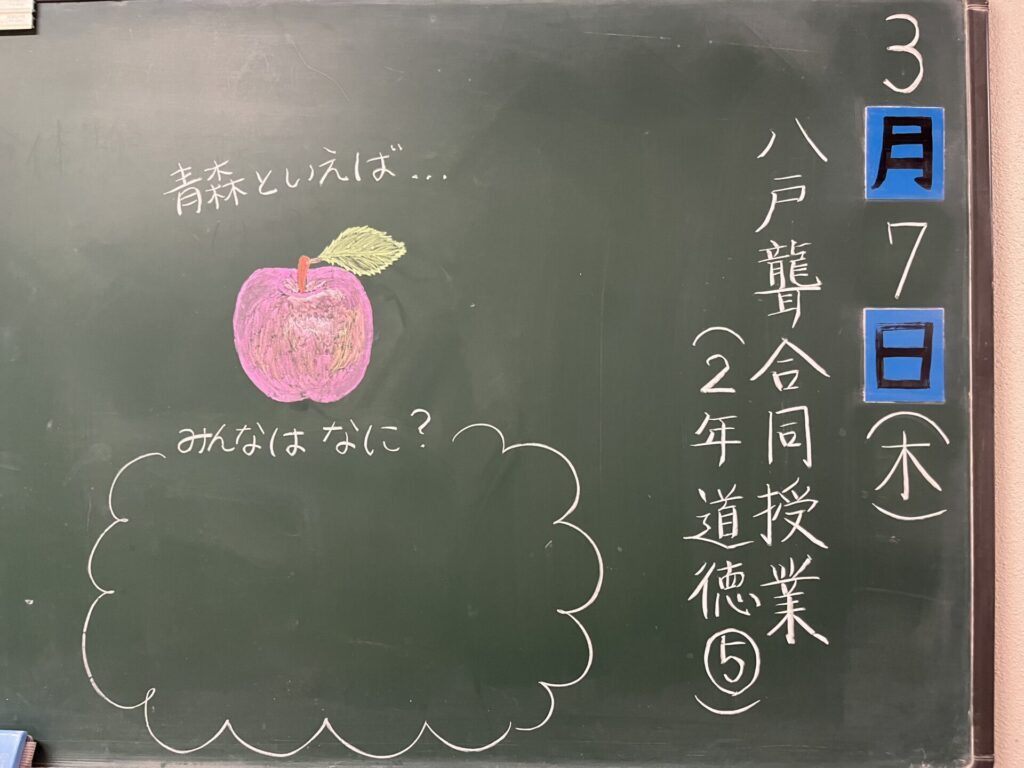 3月7日(木)
八戸聾合同授業
(2年 道徳⑤)
青森といえば...
みんなは なに?